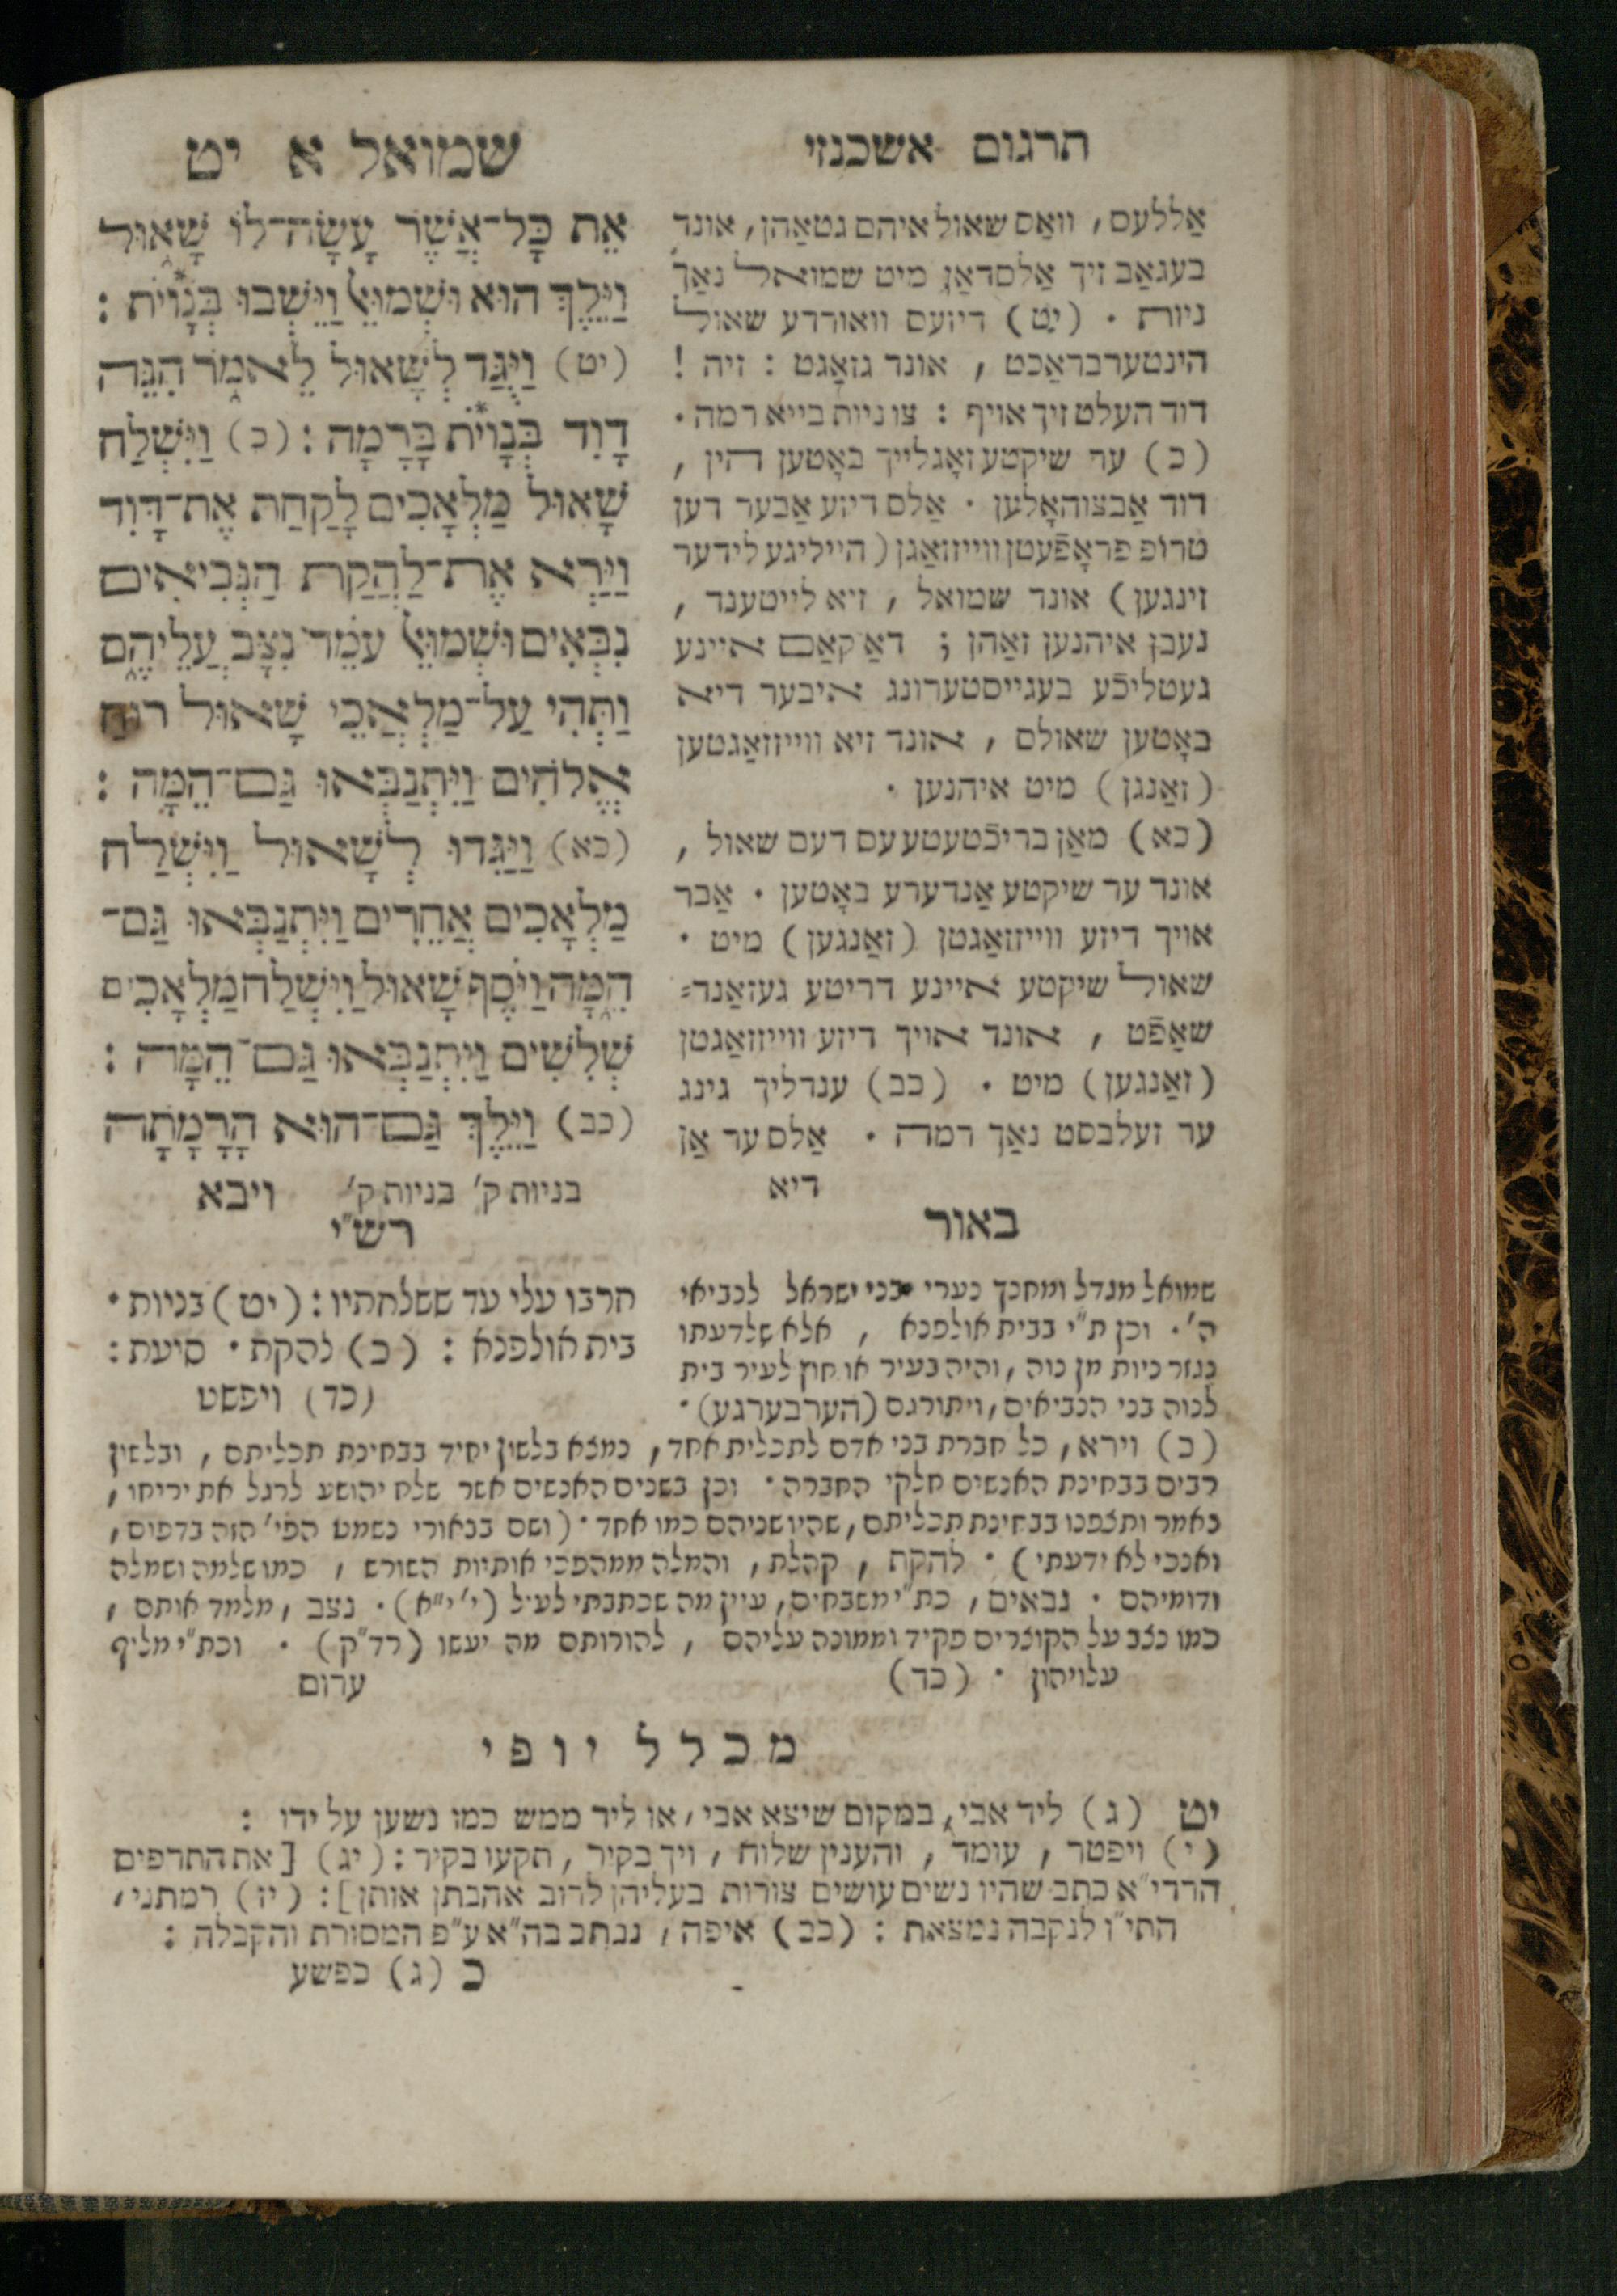 תרגום אשכנזי
אַללעס, וואַס שאול איהם גטאַהן, אונד
בעגאַב זיך אַלסדאַן מיט שמואל נאַך
ניות · (יט) דיזעס וואורדע שאול
הינטערבראַכט, אונד גזאַגט: זיה!
דוד העלט זיך אויף: צו ניות בייא רמה·
(כ) ער שיקטע זאָגלייך באָטען הין,
דוד אַבצוהאָלען · אַלס דיזע אַבער דען
טרופ פראָפֿעטן ווייזזאַגן (הייליגע לידער
זינגען) אונד שמואל, זיא לייטענד,
נעבן איהנען זאַהן; דאַ קאַם איינע
געטליכֿע בעגייסטערונג איבער דיא
באָטען שאולס, אונד זיא ווייזזאַגטען
(זאַנגן) מיט איהנען ·
(כא) מאַן בריכֿטעטע עס דעם שאול,
אונד ער שיקטע אַנדערע באָטען · אַבר
אויך דיזע ווייזזאַגטן (זאַנגען) מיט ·
שאול שיקטע איינע דריטע געזאַנד=
שאַפֿט, אונד אויך דיזע ווייזזאַגטן
(זאַנגען) מיט · (כב) ענדליך גינג
ער זעלבסט נאַך רמה · אַלס ער אַן
דיא
שמואל א יט
אֵת כָּל־אֲשֶׁר עָשָׂה־לוֹ שָׁאוּל
וַיֵּלֶךְ הוּא וּשְׁמוּאֵל וַיֵּשְׁבוּ בְּנָוִיֹת:
(יט) וַיֻּגַּד לְשָׁאוּל לֵאמֹר הִנֵּה
דָוִד בְּנָוִיֹת בָּרָמָה: (כ) וַיִּשְׁלַח
שָׁאוּל מַלְאָכִים לָקַחַת אֶת־דָּוִד
וַיַּרְא אֶת־לַהֲקַת הַנְּבִיאִים
נִבְּאִים וּשְׁמוּאֵל עֹמֵד נִצָּב עֲלֵיהֶם
וַתְּהִי עַל־מַלְאֲכֵי שָׁאוּל רוּחַ
אֱלֹהִים וַיִּתְנַבְּאוּ גַּם־הֵמָּה:
(כא) וַיַּגִּדוּ לְשָׁאוּל וַיִּשְׁלַח
מַלְאָכִים אֲחֵרִים וַיִּתְנַבְּאוּ גַּם־
הֵמָּה וַיֹּסֶף שָׁאוּל וַיִּשְׁלַח מַלְאָכִים
שְׁלִשִׁים וַיִּתְנַבְּאוּ גַּם־הֵמָּה:
(כב) וַיֵּלֶךְ גַּם־הוּא הָרָמָתָה
בניות ק' בניות ק' ויבא
באור
שמואל מגדל ומחנך נערי בני ישראל לנביאי
ה'. וכן ת"י בבית אולפנא, אלא שלדעתו
נגזר ניות מן נוה, והיה בעיר או חוץ לעיר בית
לנוה בני הנביאים, ויתורגם (הערבערגע)·
רש"י
חרבו עלי עד ששלחתיו: (יט) בניות·
בית אולפנא: (כ) להקת· סיעת:
(כד) ויפשט
(כ) וירא, כל חברת בני אדם לתכלית אחד, נמצא בלשון יחיד בבחינת תכליתם, ובלשון
רבים בבחינת האנשים חלקי החברה· וכן בשנים האנשים אשר שלח יהושע לרגל את יריחו,
נאמר ותצפנו בבחינת תכליתם, שהיו שניהם כמו אחד· (ושם בבאורי נשמט הפי' הזה בדפוס,
ואנכי לא ידעתי)· להקת, קהלת, והמלה ממהפכי אותיות השורש, כמו שלמה ושמלה
ודומיהם· נבאים, כת"י משבחים, עיין מה שכתבתי לעיל (י' י"א)· נצב, מלמד אותם,
כמו נצב על הקוצרים פקיד וממונה עליהם, להורותם מה יעשו (רד"ק)· וכת"י מליף
עלויהון· (כד) ערום
מכלל יופי
יט (ג) ליד אבי, במקום שיצא אבי, או ליד ממש כמו נשען על ידו:
(י) ויפטר, עומד, והענין שלוח, ויך בקיר, תקעו בקיר: (יג) [את התרפים
הרדי"א כתב שהיו נשים עושים צורות בעליהן לרוב אהבתן אותן]: (יז) רמתני,
התי"ו לנקבה נמצאת: (כב) איפה, נכתב בה"א ע"פ המסורת והקבלה:
כ (ג) כפשע